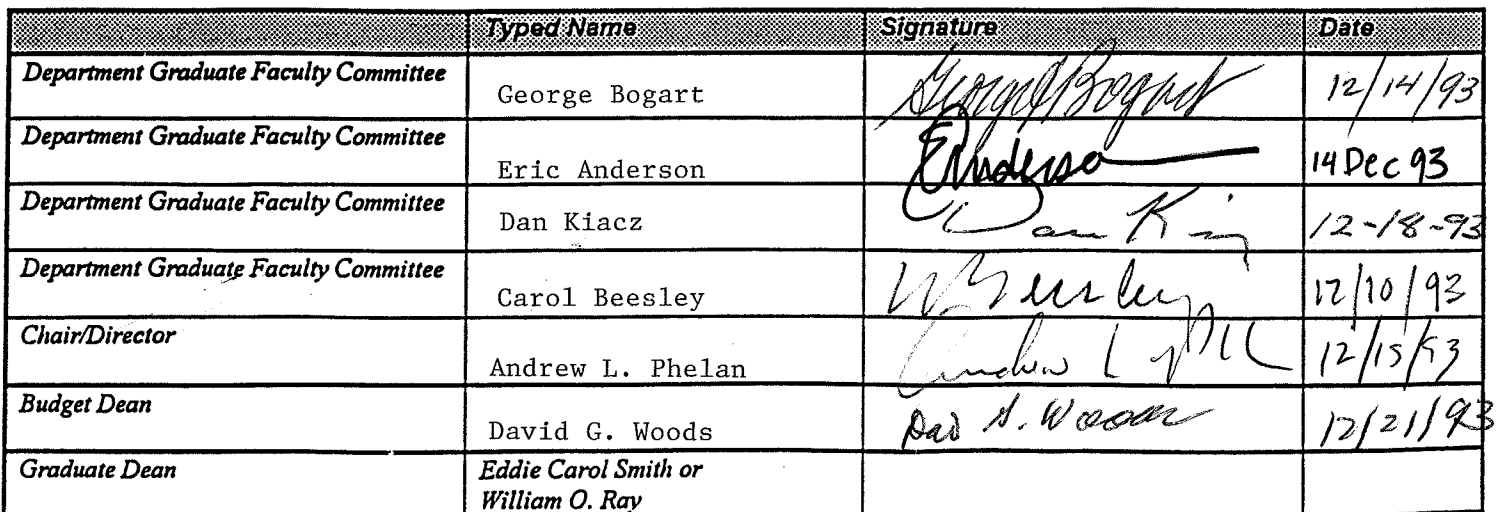 Typed Name Signature Date
Department Graduate Faculty Committee George Bogart George J Bogart 12/14/93
Department Graduate Faculty Committee Eric Anderson EAnderson 14 Dec 93
Department Graduate Faculty Committee Dan Kiacz Dan 12-18-93
Department Graduate Faculty Committee Carol Beesley Beesley 12/10/93
Chair/Director Andrew L. Phelan Andrew L 12/15/93
Budget Dean David G. Woods Woods 12/21/93
Graduate Dean Eddie Carol Smith or
William O. Ray